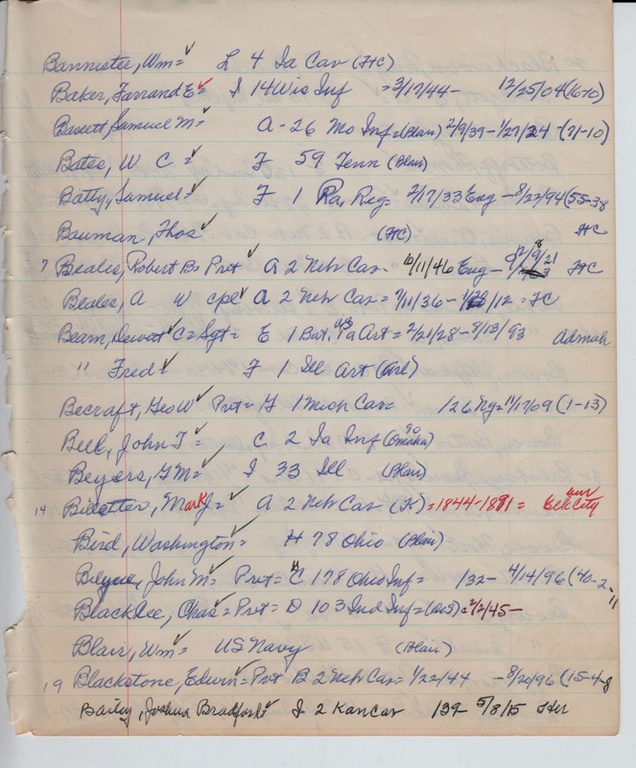 Bannister, Wm= L 4 Ia Cav (FtC)
Baker, Farrand E= I 14 Wis Inf =3/17/44- 12/25/04 (16-10)
Bassett, Samuel M= A-26 Mo Inf=(Blair) 2/9/39-1/27/24-(71-10)
Bates, W C= F 59 Tenn (Blair)
Batty, Samuel= F 1 Reg- 2/17/33 Eng -8/22/94 (55-38
Bauman, Thos (FtC) FtC
7 Beales, Robert B= Pvt A 2 Neb Cav- 10/11/46 Eng- FtC
Beales, A W cpl A 2 Neb Cav= 7/11/36- /12 = FC
Beam, Dewott C= Sgt= E 1 Bat. Pa Art= 2/21/28-8/13/93 Admah
" Fred F 1 Ill Art (Arl)
Becraft, Geo W Pvt= G 1 Mich Cav= /26 Ny= 11/17/09 (1-13)
Bell, John T= C 2 Ia Inf (Omaha)
Beyers, G M= I 33 Ill (Blair)
14 Mark J= A 2 Neb Cav (K)=1844-1891= Elk City
Bird, Washington= H 78 Ohio (Blair)
John M= Pvt= C 178 Ohio Inf= /32- 4/14/96 (40-2-11
Blacklee, Chas= Pvt= D 103 Ind Inf= 2/2/45-
Blair, Wm= US Navy (Blair)
19 Blackstone, Edwin= Pvt B 2 Neb Cav= 1/22/44 -8/20/96 (15-4-8
Bailey, Joshua Bradford I 2 Kan Cav /39- 5/8/15 Her